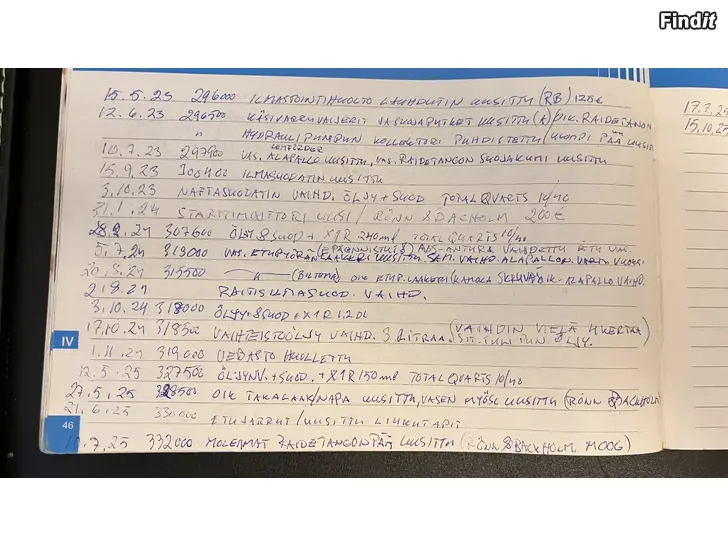 Findit
15.5.23 296000 ILMASTOINTIHUOLTO LAUHDUTIN UUSITTU (RB) 125€
12.6.23 296500 KÄSIJARRUVAIJERIT JA SUOJAPUTKET UUSITTU OIK. RAIDETANGON
" HYDRAULIPUMPUN KOLLEKTORI PUHDISTETTU PÄÄ UUSITTU
LEMFÖRDER
10.7.23 297900 VAS. ALAPALLO UUSITTU, VAS. RAIDETANGON SUOJAKUMI UUSITTU
15.9.23 300400 ILMASUODATIN UUSITTU
3.10.23 NAFTASUODATIN VAIHD. ÖLJY + SUOD TOTAL QUARTS 10/40
31.1.24 STARTTIMOOTTORI UUSI / RÖNN & BACKHOLM 200€
28.2.24 307600 ÖLJY & SUOD + X1R 240ml TOTAL QUARTS 10/40
5.7.24 313000 VAS. ETUPYÖRÄN LAAKERI UUSITTU ABS-ANTURA VAIHDETTU ETU VAS.
SAM. VAIHD. ALAPALLON
315500 (BILTEMA) OIK ETUP. LAAKERI OIK. ALAPALLO VAIHD.
2.8.24 RAITISILMASUOD. VAIHD.
3.10.24 318000 ÖLJY & SUOD + X1R 1.2 DL
17.10.24 318500 VAIHTEISTÖLJY VAIHD. 3 LITRAA (VAIHDIN VIELÄ 4 KERTAA) ÖLJY.
1.11.24 319000 VEBASTO HUOLLETTU
12.5.25 327500 ÖLJYNV. + SUOD. + X1R 150ml TOTAL QUARTS 10/40
27.5.25 328500 OIK TAKALAAK/NAPA UUSITTU, VASEN MYÖS UUSITTU (RÖNN & BACKHOLM)
21.6.25 330000 ETUJARRUT / UUSITTU LIUKUTAPIT
10.7.25 332000 MOLEMMAT RAIDETANGONPÄÄT UUSITTU (RÖNN & BACKHOLM. MOOG)
IV
46
17.7.25
15.10.25